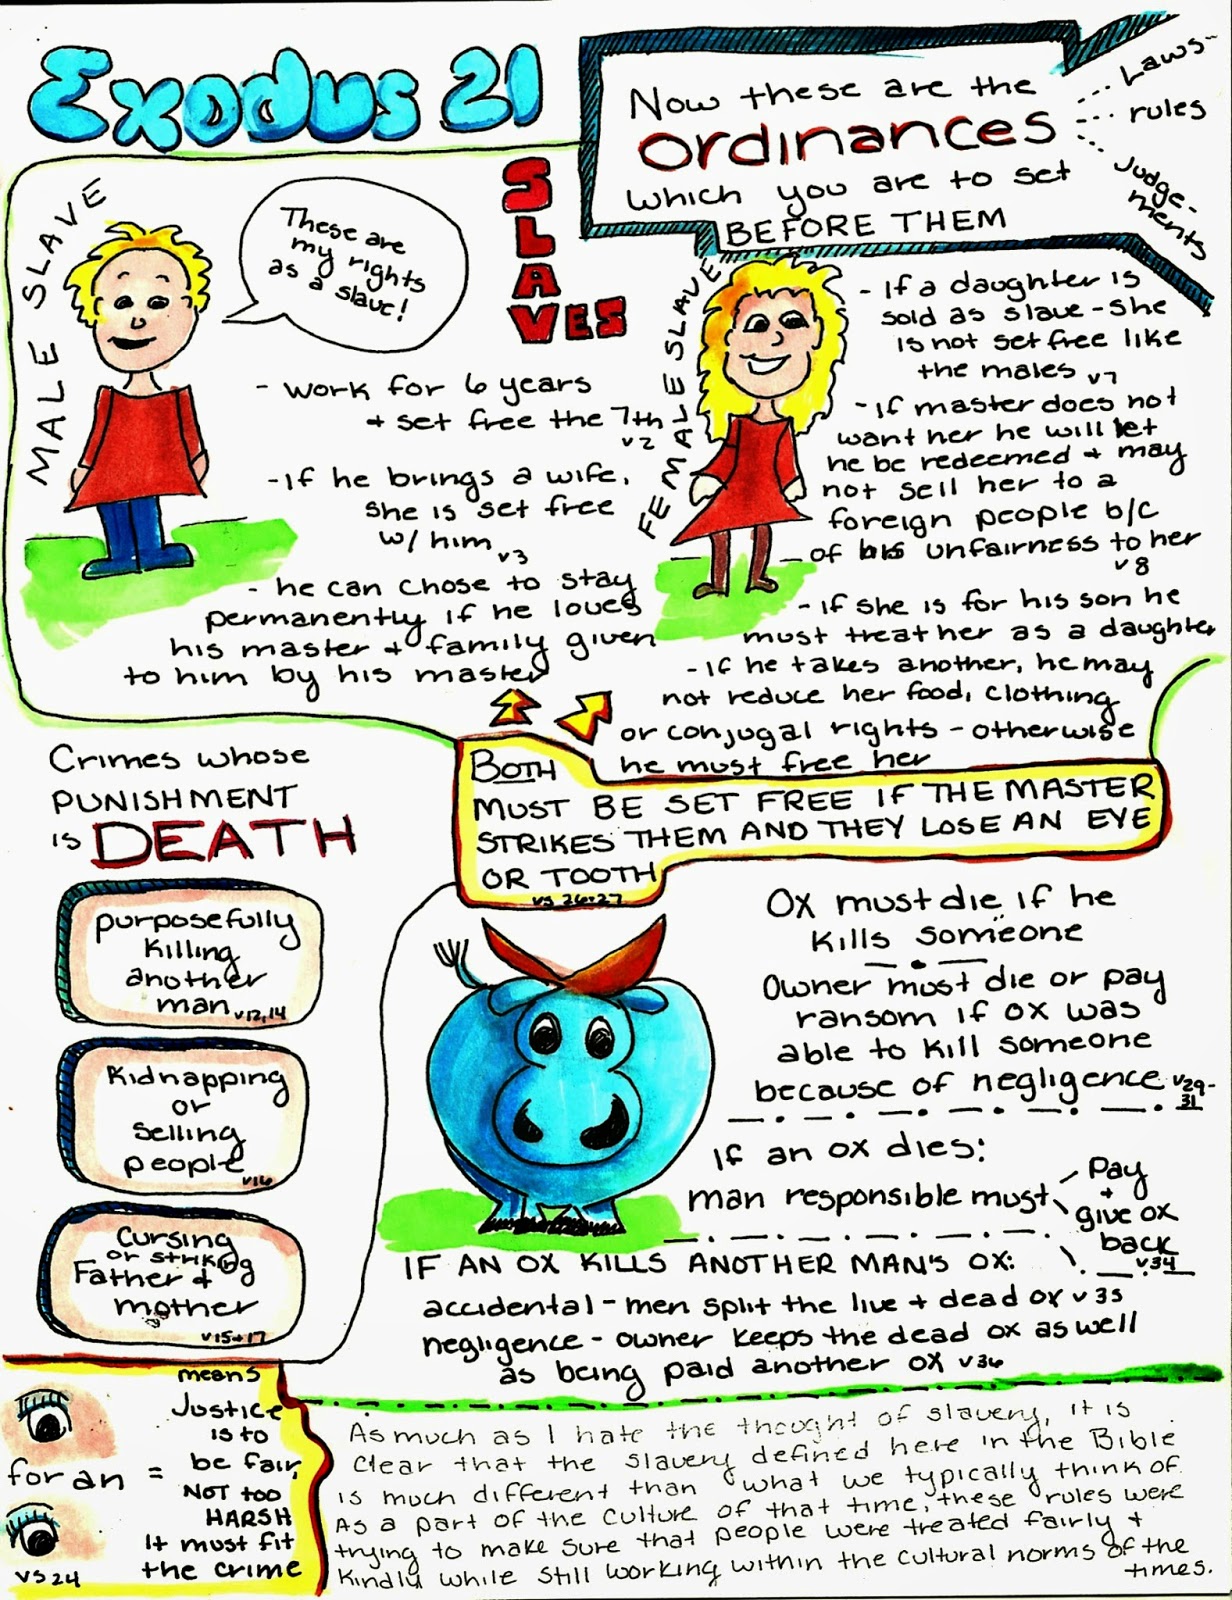 Exodus 21
Now these are the
ordinances
which you are to set
BEFORE THEM
Laws-
rules
Judge-
ments
SLAVES
MALE SLAVE
These are
my rights
as a slave!
- work for 6 years
+ set free the 7th
v2
-If he brings a wife,
she is set free
w/ him v3
- he can chose to stay
permanently if he loves
his master + family given
to him by his master
FEMALE SLAVE
- If a daughter is
sold as slave - she
is not set free like
the males v7
- if master does not
want her he will let
he be redeemed + may
not sell her to a
foreign people b/c
of his unfairness to her
v8
- if she is for his son he
must treat her as a daughter
- if he takes another, he may
not reduce her food, clothing
or conjugal rights - otherwise
he must free her
BOTH
MUST BE SET FREE IF THE MASTER
STRIKES THEM AND THEY LOSE AN EYE
OR TOOTH
vs 26+27
Crimes whose
PUNISHMENT
is DEATH
purposefully
killing
another
man v12,14
Kidnapping
or
selling
people
v16
Cursing
or striking
Father +
mother
v15+17
Ox must die if he
kills someone
Owner must die or pay
ransom if ox was
able to kill someone
because of negligence v29-
31
If an ox dies:
man responsible must
Pay
+
give ox
back
v34
IF AN OX KILLS ANOTHER MAN'S OX:
accidental - men split the live + dead ox v35
negligence - owner keeps the dead ox as well
as being paid another ox v36
for an =
vs 24
means
Justice
is to
be fair,
NOT too
HARSH
It must fit
the crime
As much as I hate the thought of slavery, it is
clear that the slavery defined here in the Bible
is much different than what we typically think of.
As a part of the culture of that time, these rules were
trying to make sure that people were treated fairly +
kindly while still working within the cultural norms of the
times.